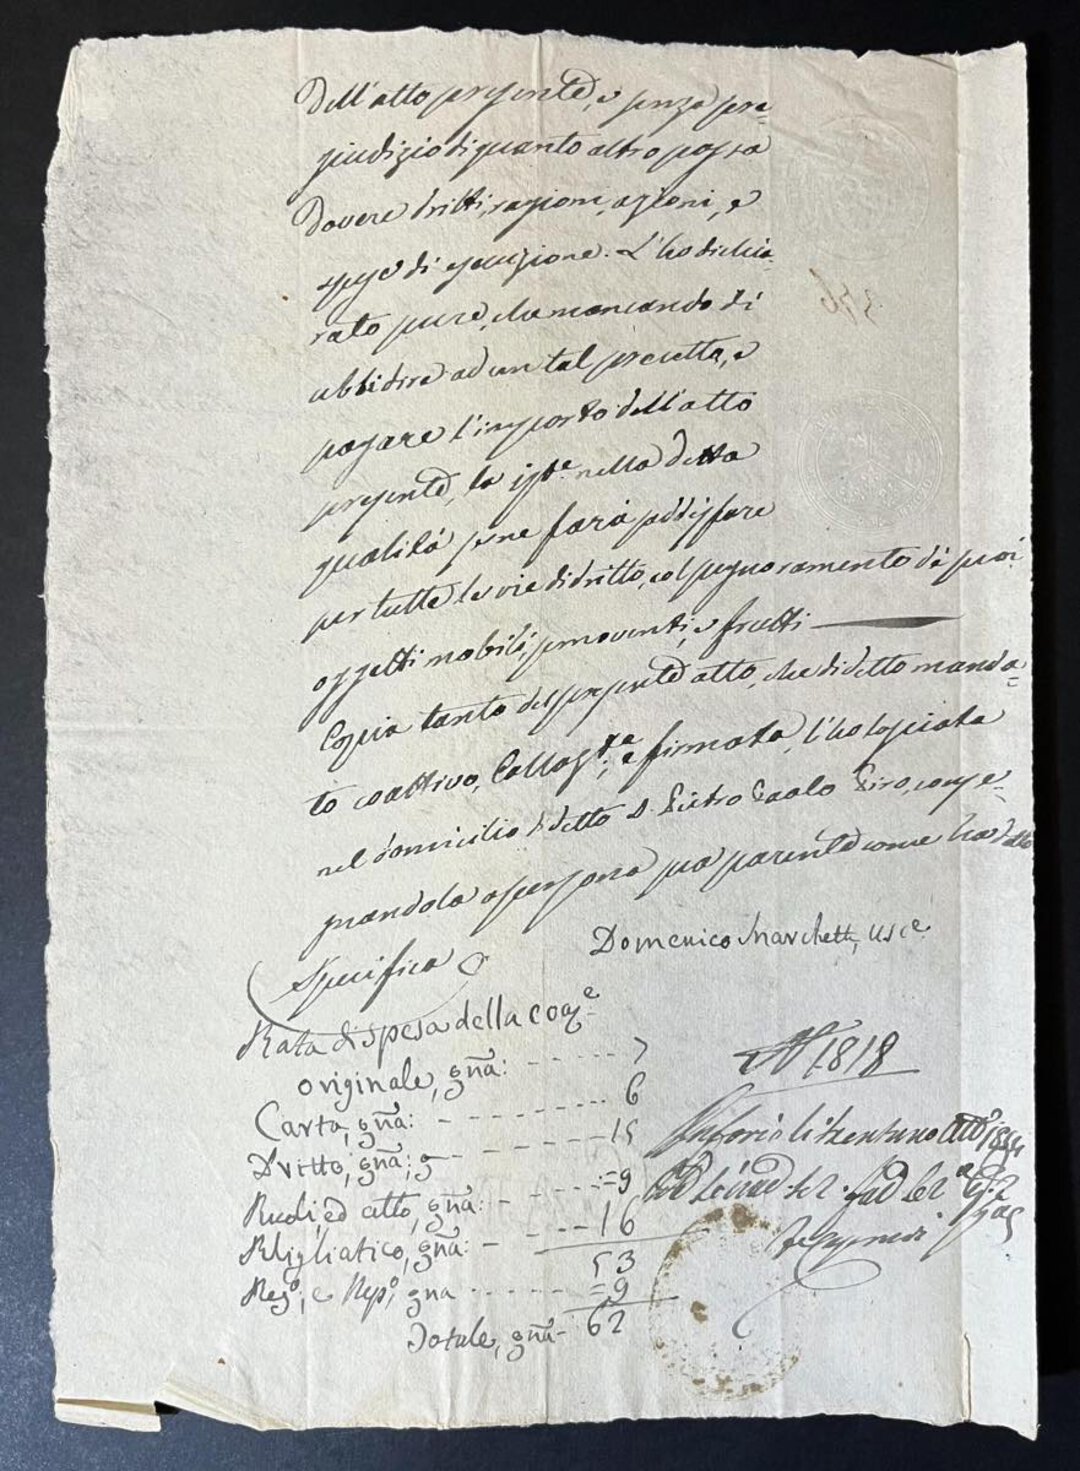 Dell'atto presente, e senza pre=
giudizio di quanto altro possa
Dovere dritti, ragioni, azioni, e
spese di esecuzione. L'ho dichia=
rato pure, che mancando di
ubbidire ad un tal precetto, e
pagare l'importo dell'atto
presente, la ist.e nella detta
qualità se ne farà soddisfare
per tutte le vie di dritto, col pegnoramento di suoi
oggetti mobili, semoventi, e frutti
Copia tanto del presente atto, che di detto manda=
to coattivo, e firmata, l'ho lasciata
nel domicilio di detto D. Pietro Paolo Piro, conse=
gnandola a persona sua parente come ha detto
Domenico Marchetti, usce
Specifica
Rata di spesa della coaz.e
originale, gña: 7
Carta, gña: 6
Dritto, gña: 15
Ruoli, ed atto, gña: =9
gña: 16
53
Reg.o, e Rep.o, gna =9
Totale, gña 62
N 1818
376